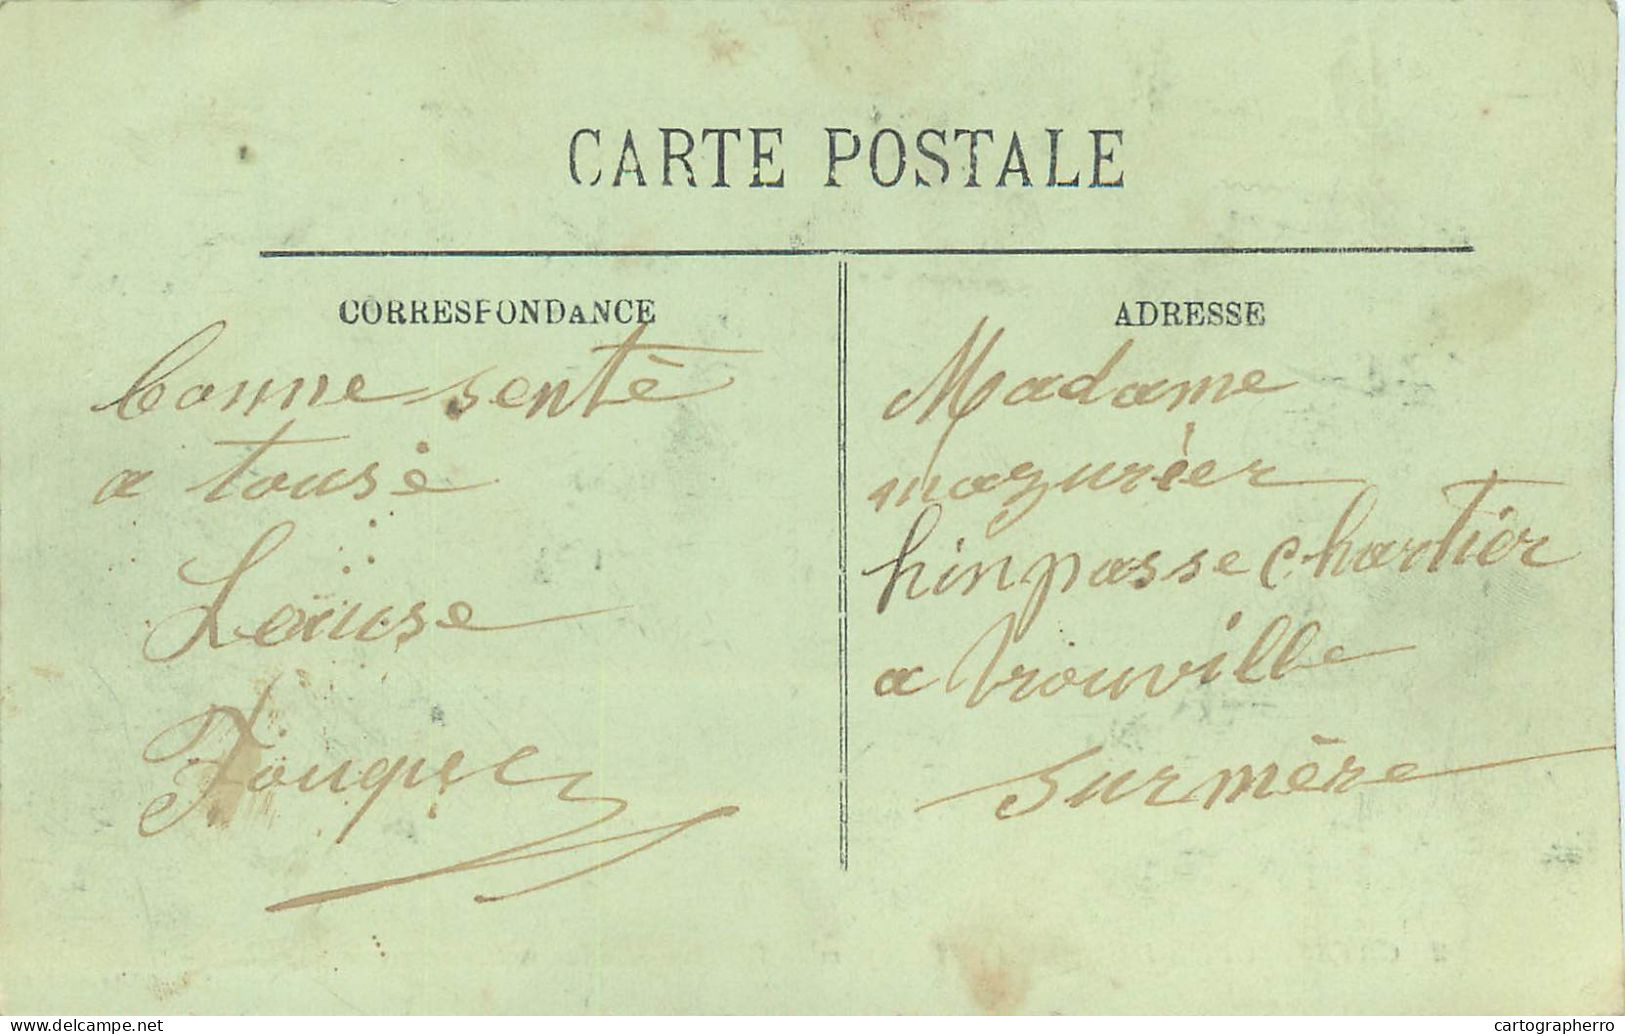 CARTE POSTALE
CORRESPONDANCE
bonne senté
a tousé
Louise
Fouque
ADRESSE
Madame
mazurier
hinpasse chartier
a trouville
sur mère
www.delcampe.net
cartographerro